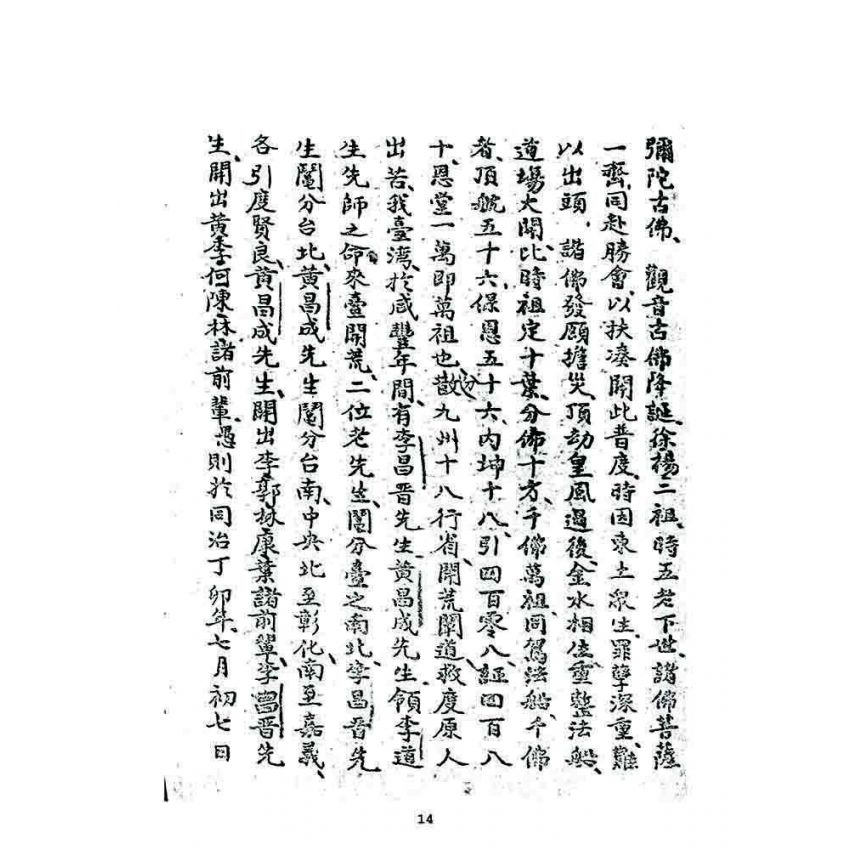 彌陀古佛、觀音古佛降誕徐楊二祖、時五老下世、諸佛菩薩
一齊同赴勝會、以扶湊開此普度、時因東土眾生罪孽深重、難
以出頭、諸佛發願擔災頂劫、皇風過後、金水相生重整法船、
道場大開、比時祖定十葉分佈十方、千佛萬祖同駕法船、千佛
者、頂航五十六、保恩五十六、內坤十八、引四百零八、証四百八
十、恩堂一萬即萬祖也、散九州十八行省、開荒闡道救度原人
出苦、我臺灣於咸豐年間、有李昌晋先生黃昌成先生、領李道
生先師之命來臺開荒、二位老先生、鬮分臺之南北、李昌晋先
生鬮分台北、黃昌成先生鬮分台南、中央北至彰化、南至嘉義、
各引度賢良、黃昌成先生、開出李郭林康葉諸前輩、李昌晋先
生、開出黃李何陳林諸前輩、愚則於同治丁卯年七月初七日
14